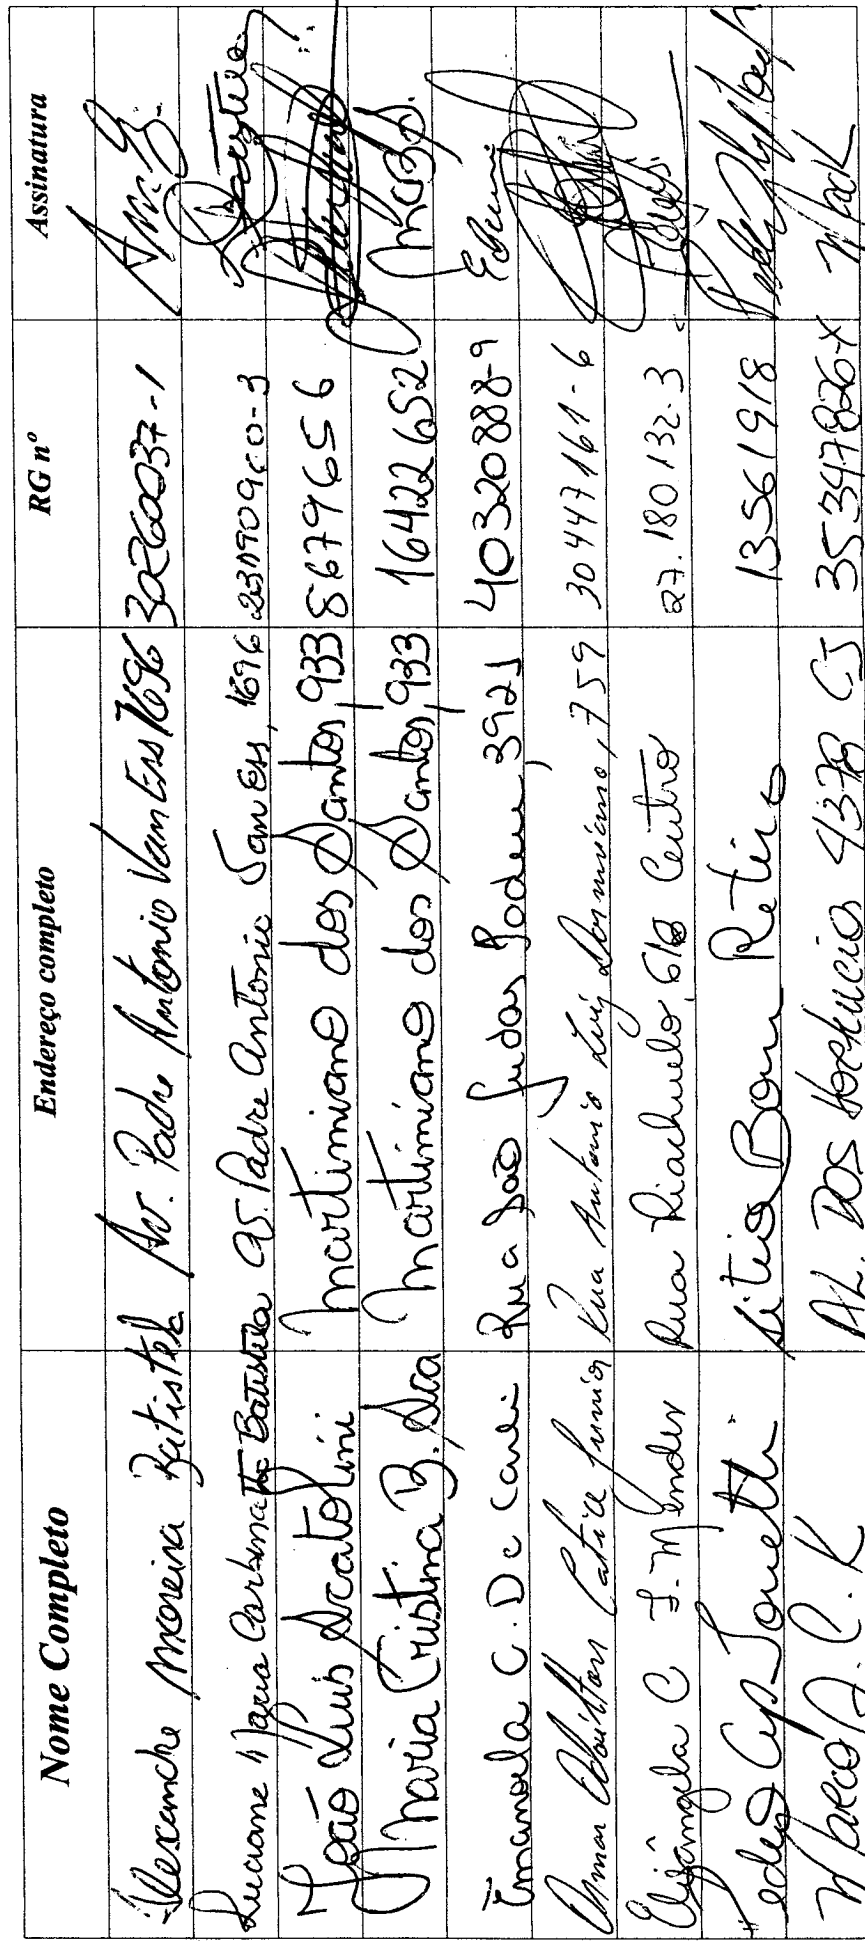 Nome Completo Endereço completo RG nº Assinatura
Alexandre Moreira Batistela Av. Padre Antonio Van Ess 1696 30260037-1 AMB.
Luciane Maria Batistela Padre Antonio Van Ess, 1696 Batistela
João Luis Scatolini Martimiano dos Santos, 933 8679656
Maria Cristina B. Sca Martimiano dos Santos, 933 16422652
Emanoela C. De Carli Rua São Judas Tadeu, 3921 40320888-9
Osmar Catice Junior Rua Antonio Luiz Damiano, 759 30447161-6
Elisângela C F. Mendes Rua Riachuelo, 618 Centro 27.180132-3
Pedro Sitio Bom Retiro 13561918
Marco A. C. K AL. DOS 4379 CJ 35347826-X Mack